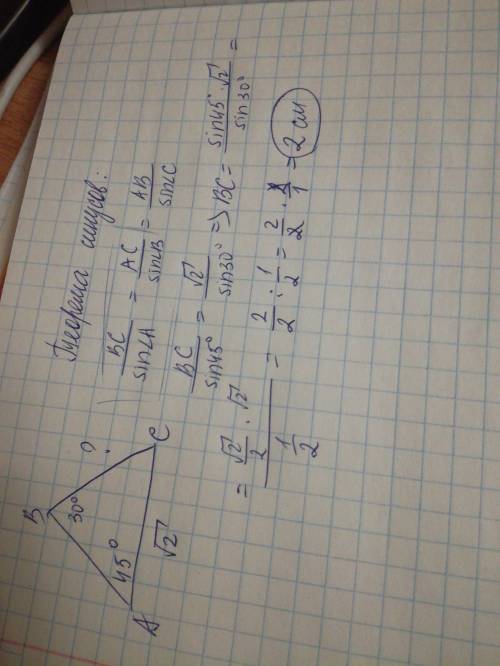 Теорема синусов:
BC/sin∠A = AC/sin∠B = AB/sin∠C
BC/sin45° = √2/sin30° => BC = sin45°·√2/sin30° =
= (√2/2 · √2)/(1/2) = 2/2 : 1/2 = 2/2 · 2/1 = 2 см
B
30°
?
45°
A
√2
C